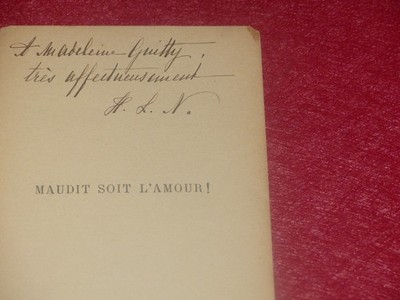 A Madeleine Guitty,
très affectueusement
H. L. N.
MAUDIT SOIT L'AMOUR!